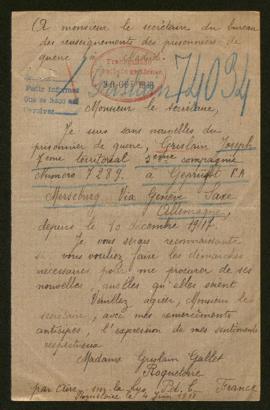 (A monsieur le secrétaire du bureau
des renseignements des prisonniers de
guerre à Madrid
74034
Monsieur le secrétaire,
Je suis sans nouvelles du
prisonnier de guerre, Ghislain Joseph
7eme territorial 3eme compagnie
Numéro 7289. à Geprüft P.A
Merseburg. Via Genève. Saxe
Allemagne,
depuis le 10 décembre 1917.
Je vous serais reconnaissante
si vous vouliez faire les démarches
necessaires pour me procurer de ses
nouvelles, qu'elles soient
Veuillez agréer, Monsieur le
secrétaire, avec mes remerciements
anticipés, l'expression de mes sentiments
respectueux
Madame Ghislain Gallet
Roquetoire
par Aire-sur-la-Lys P.d.C. France
Roquetoire le 4 juin 1918